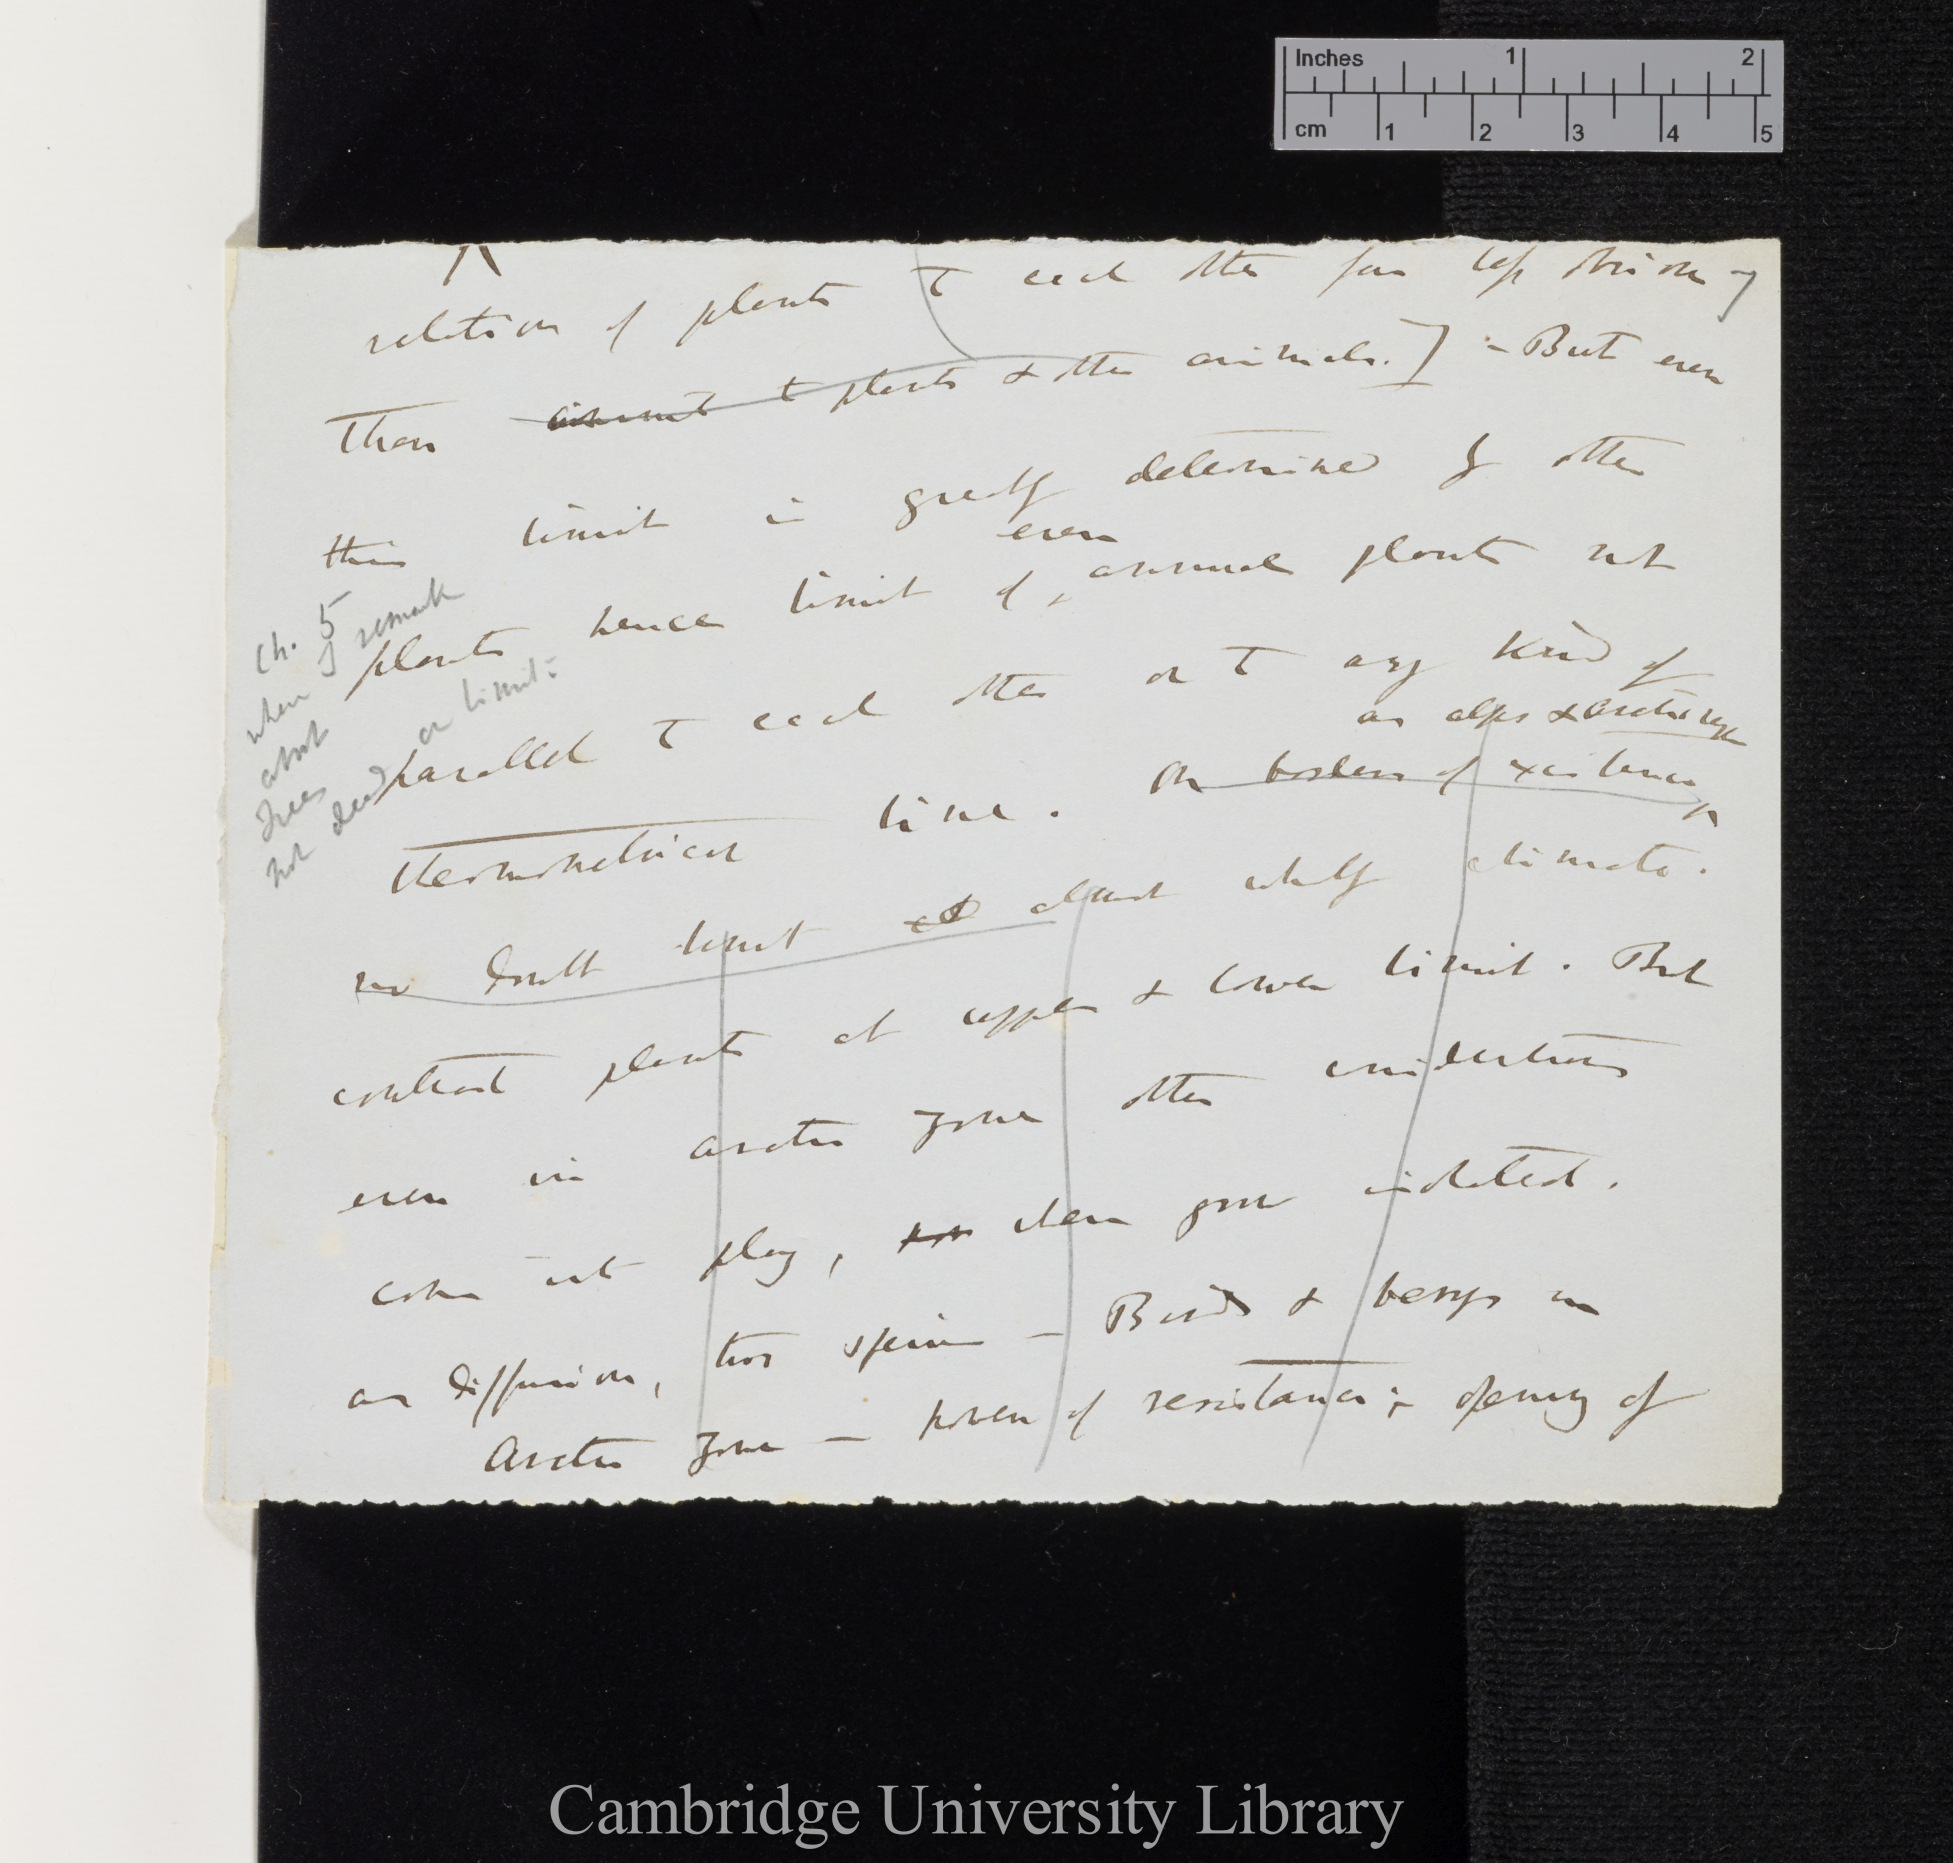 Inches 1 2
cm 1 2 3 4 5
relation of plants to each other far less striking
than animals to plants & other animals.] – But even
this limit is greatly determined by other
even
plants hence limit of annual plants not
parallel to each other or to any kind of
as alps & arctic regn
thermometrical line. On borders of existence
no doubt limit almost wholly climate.
contrast plants at upper & lower limit. But
even in arctic zone other
come into play, when grow isolated.
as diffusion, two species – Birds & berrys in
Arctic zone – power of resistance; – of
Ch. 5
when I remark
about
Trees
not dead
on limit:
Cambridge University Library